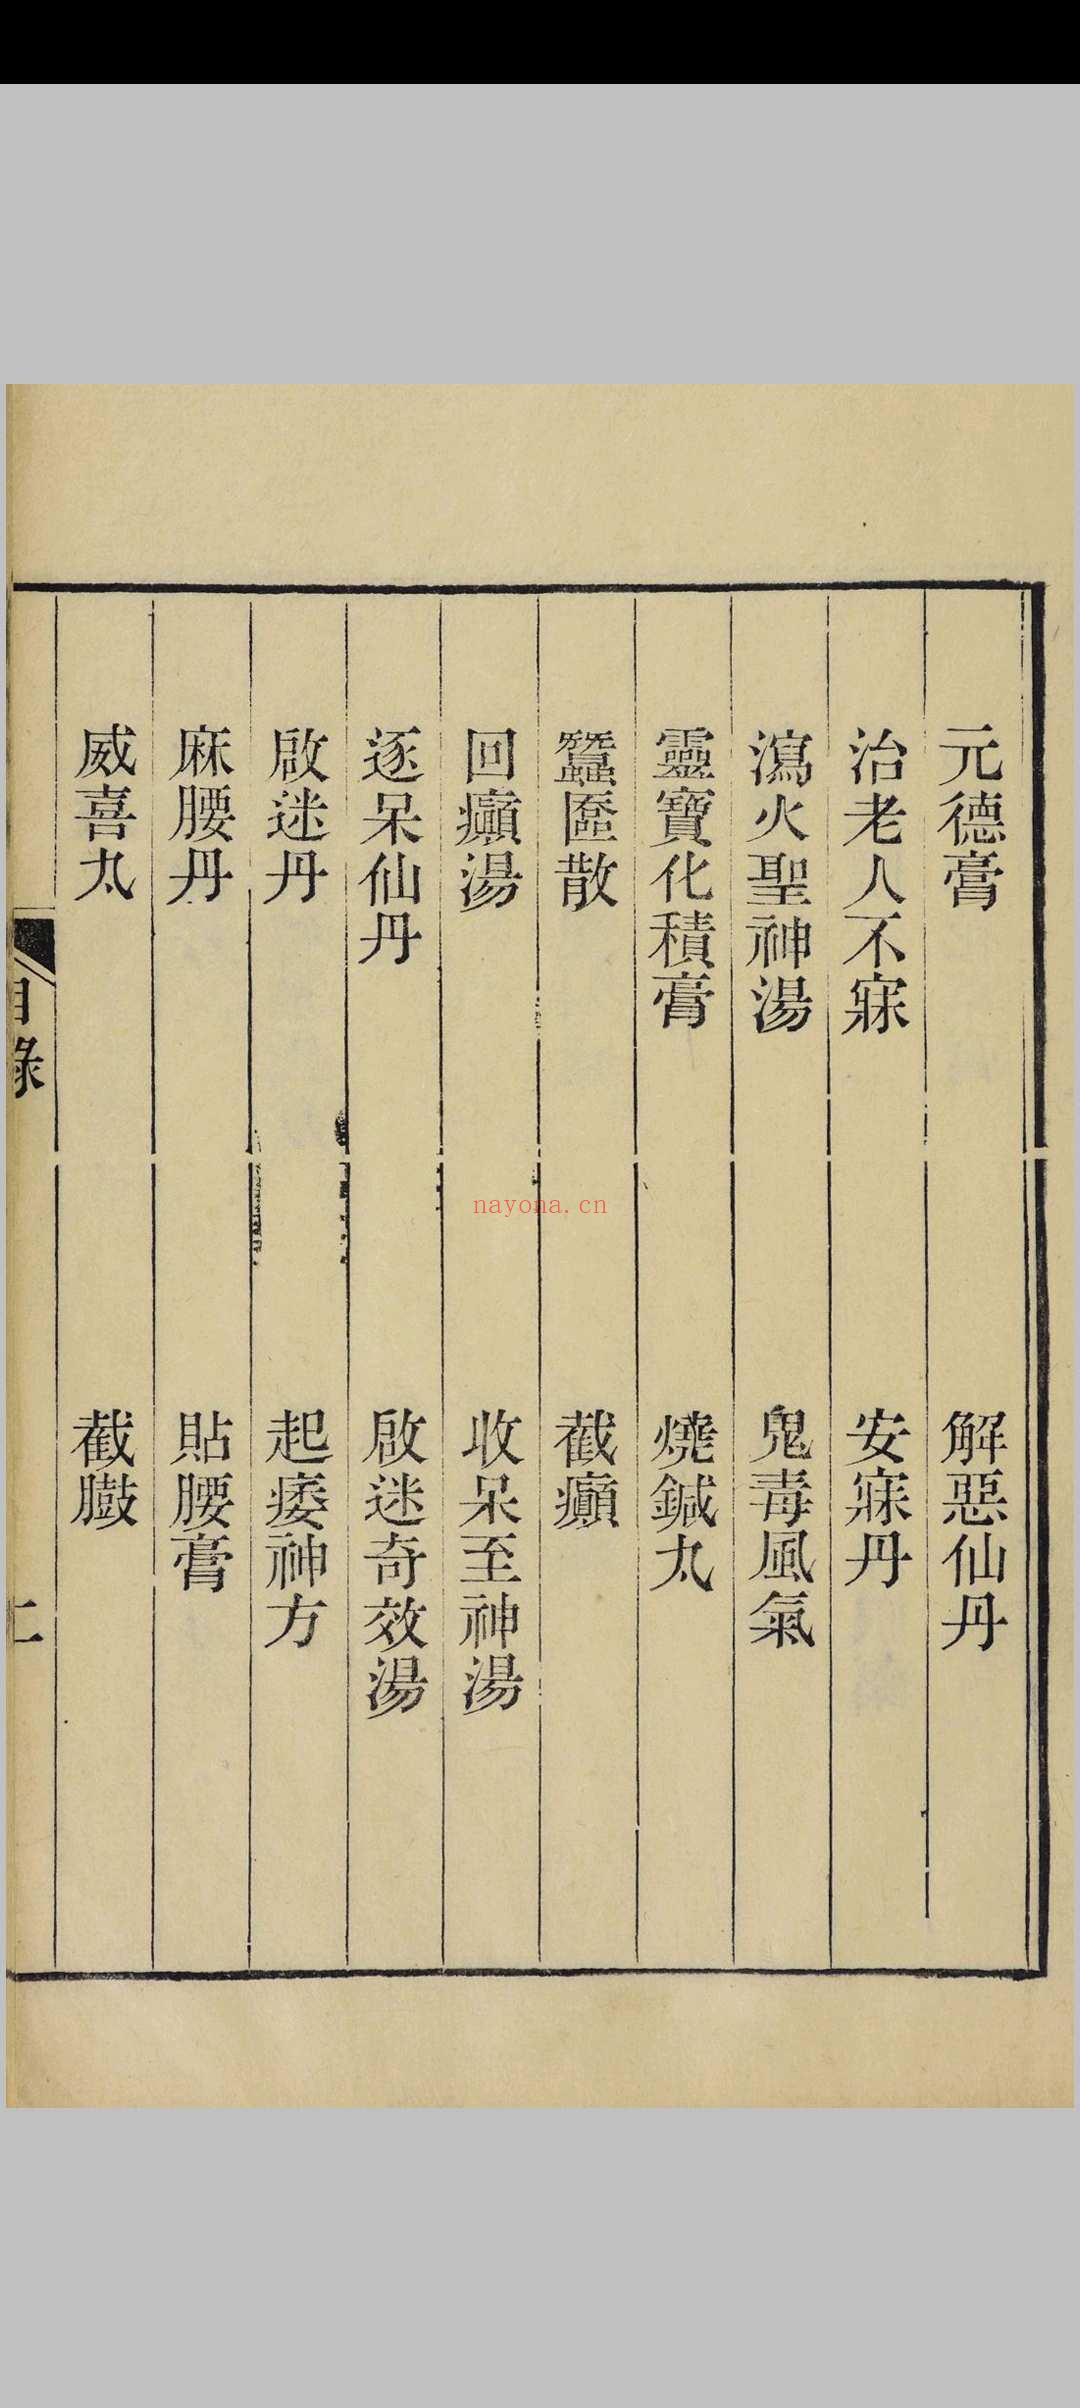 元德膏 解惡仙丹
治老人不寐 安寐丹
瀉火聖神湯 鬼毒風氣
靈寶化積膏 燒鍼丸
蠶匼散 截癲
回癲湯 收呆至神湯
逐呆仙丹 啟迷奇效湯
啟迷丹 起痿神方
麻腰丹 貼腰膏
威喜丸 截臌
目錄
nayona.cn